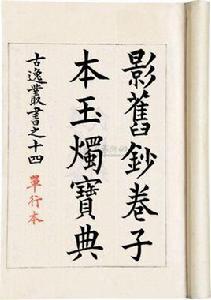 影舊鈔卷子
本玉燭寶典
古逸叢書之十四
單行本